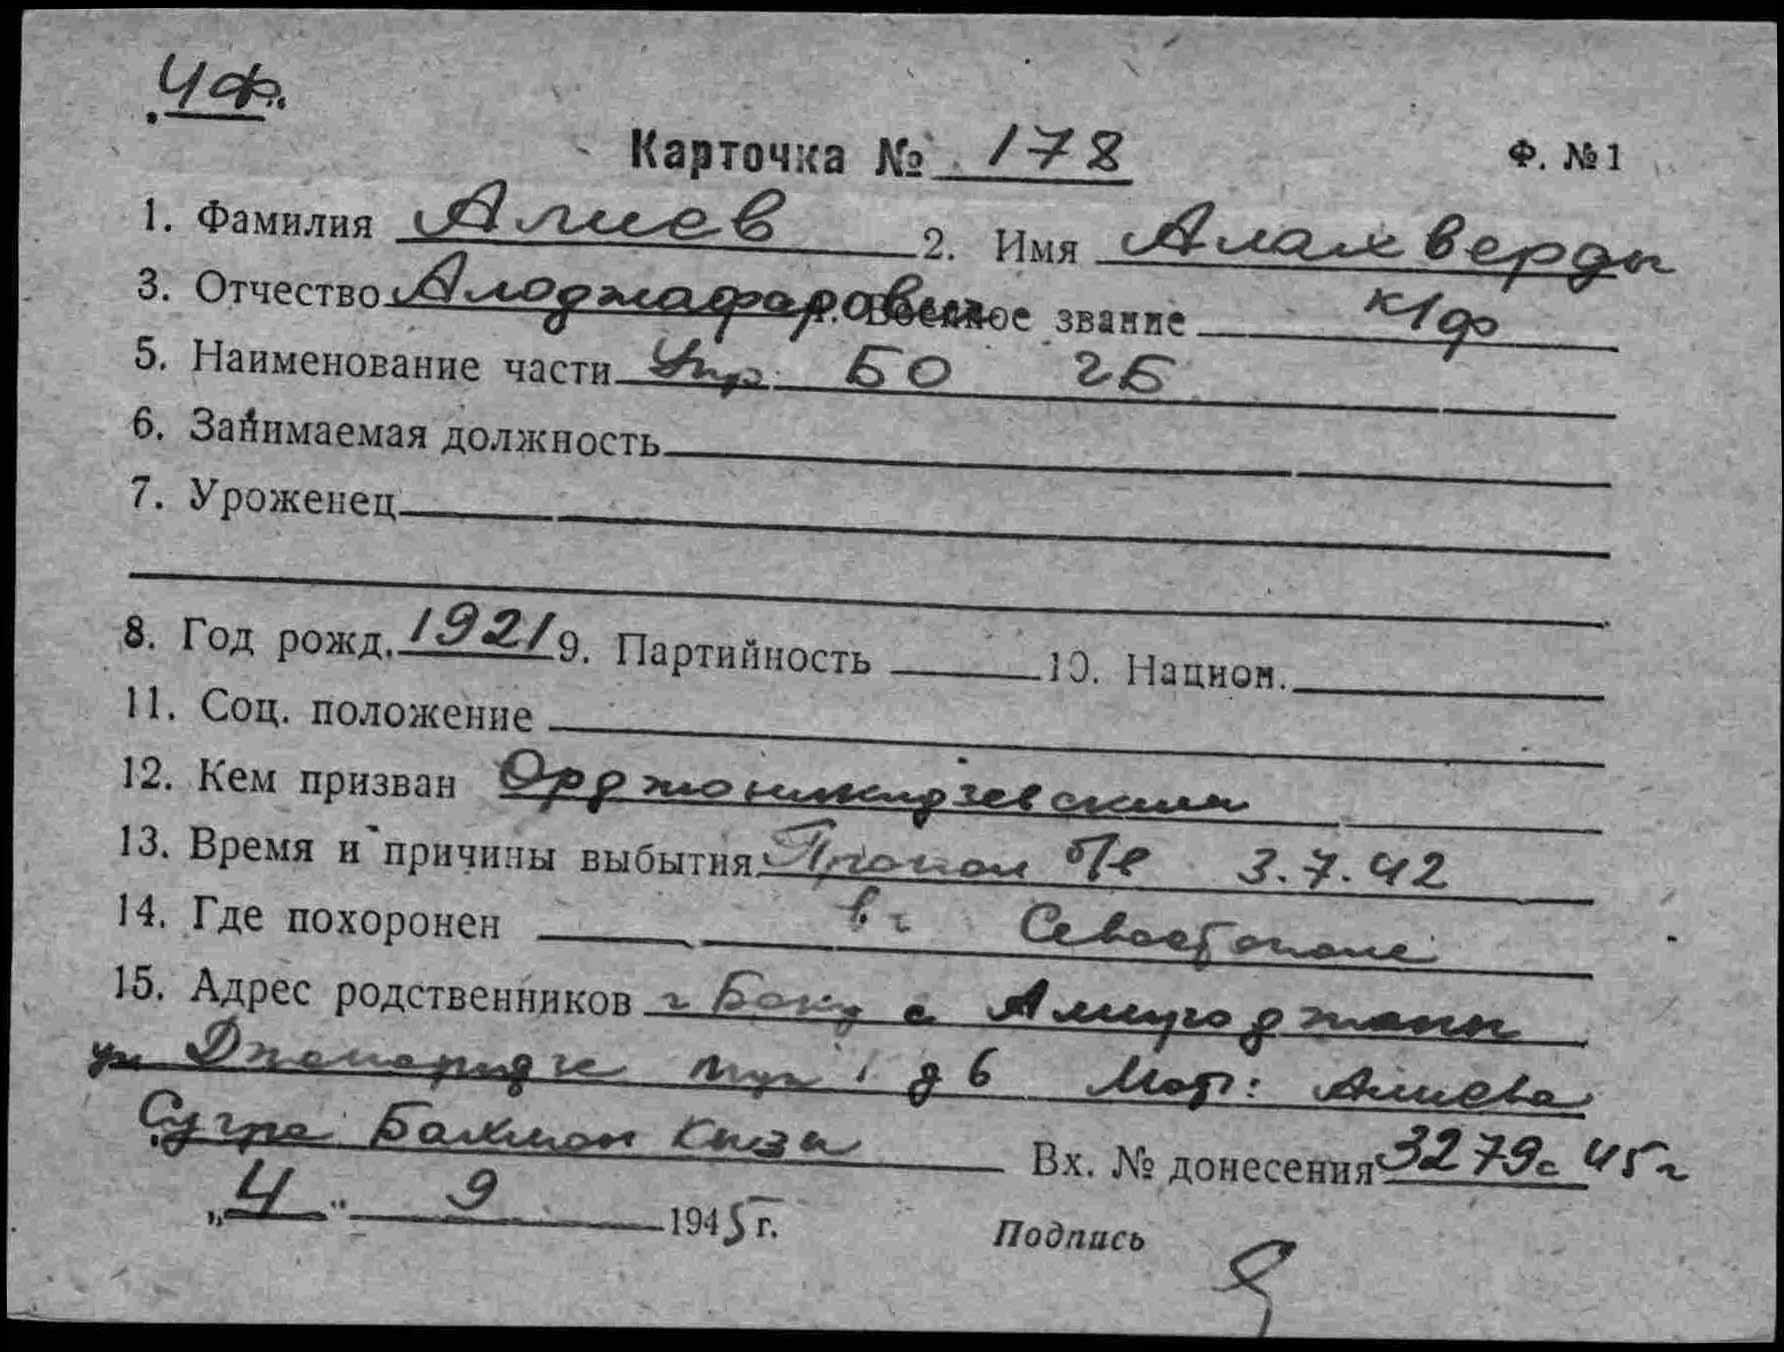 ЧФ.
Карточка № 178 Ф. №1
1. Фамилия Алиев 2. Имя Алахверды
3. Отчество Алоджафарович 4. Военное звание к/ф
5. Наименование части Упр БО ГБ
6. Занимаемая должность
7. Уроженец
8. Год рожд. 1921 9. Партийность 10. Национ.
11. Соц. положение
12. Кем призван Орджоникидзевским
13. Время и причины выбытия Пропал б/в 3.7.42
14. Где похоронен в г Севастополе
15. Адрес родственников г Баку с Амироджаны
ул Джапаридзе туп 1 д 6 Мать: Алиева
Сугра Бахман Кызы Вх. № донесения 3279с 45г
„4" 9 1945 г. Подпись